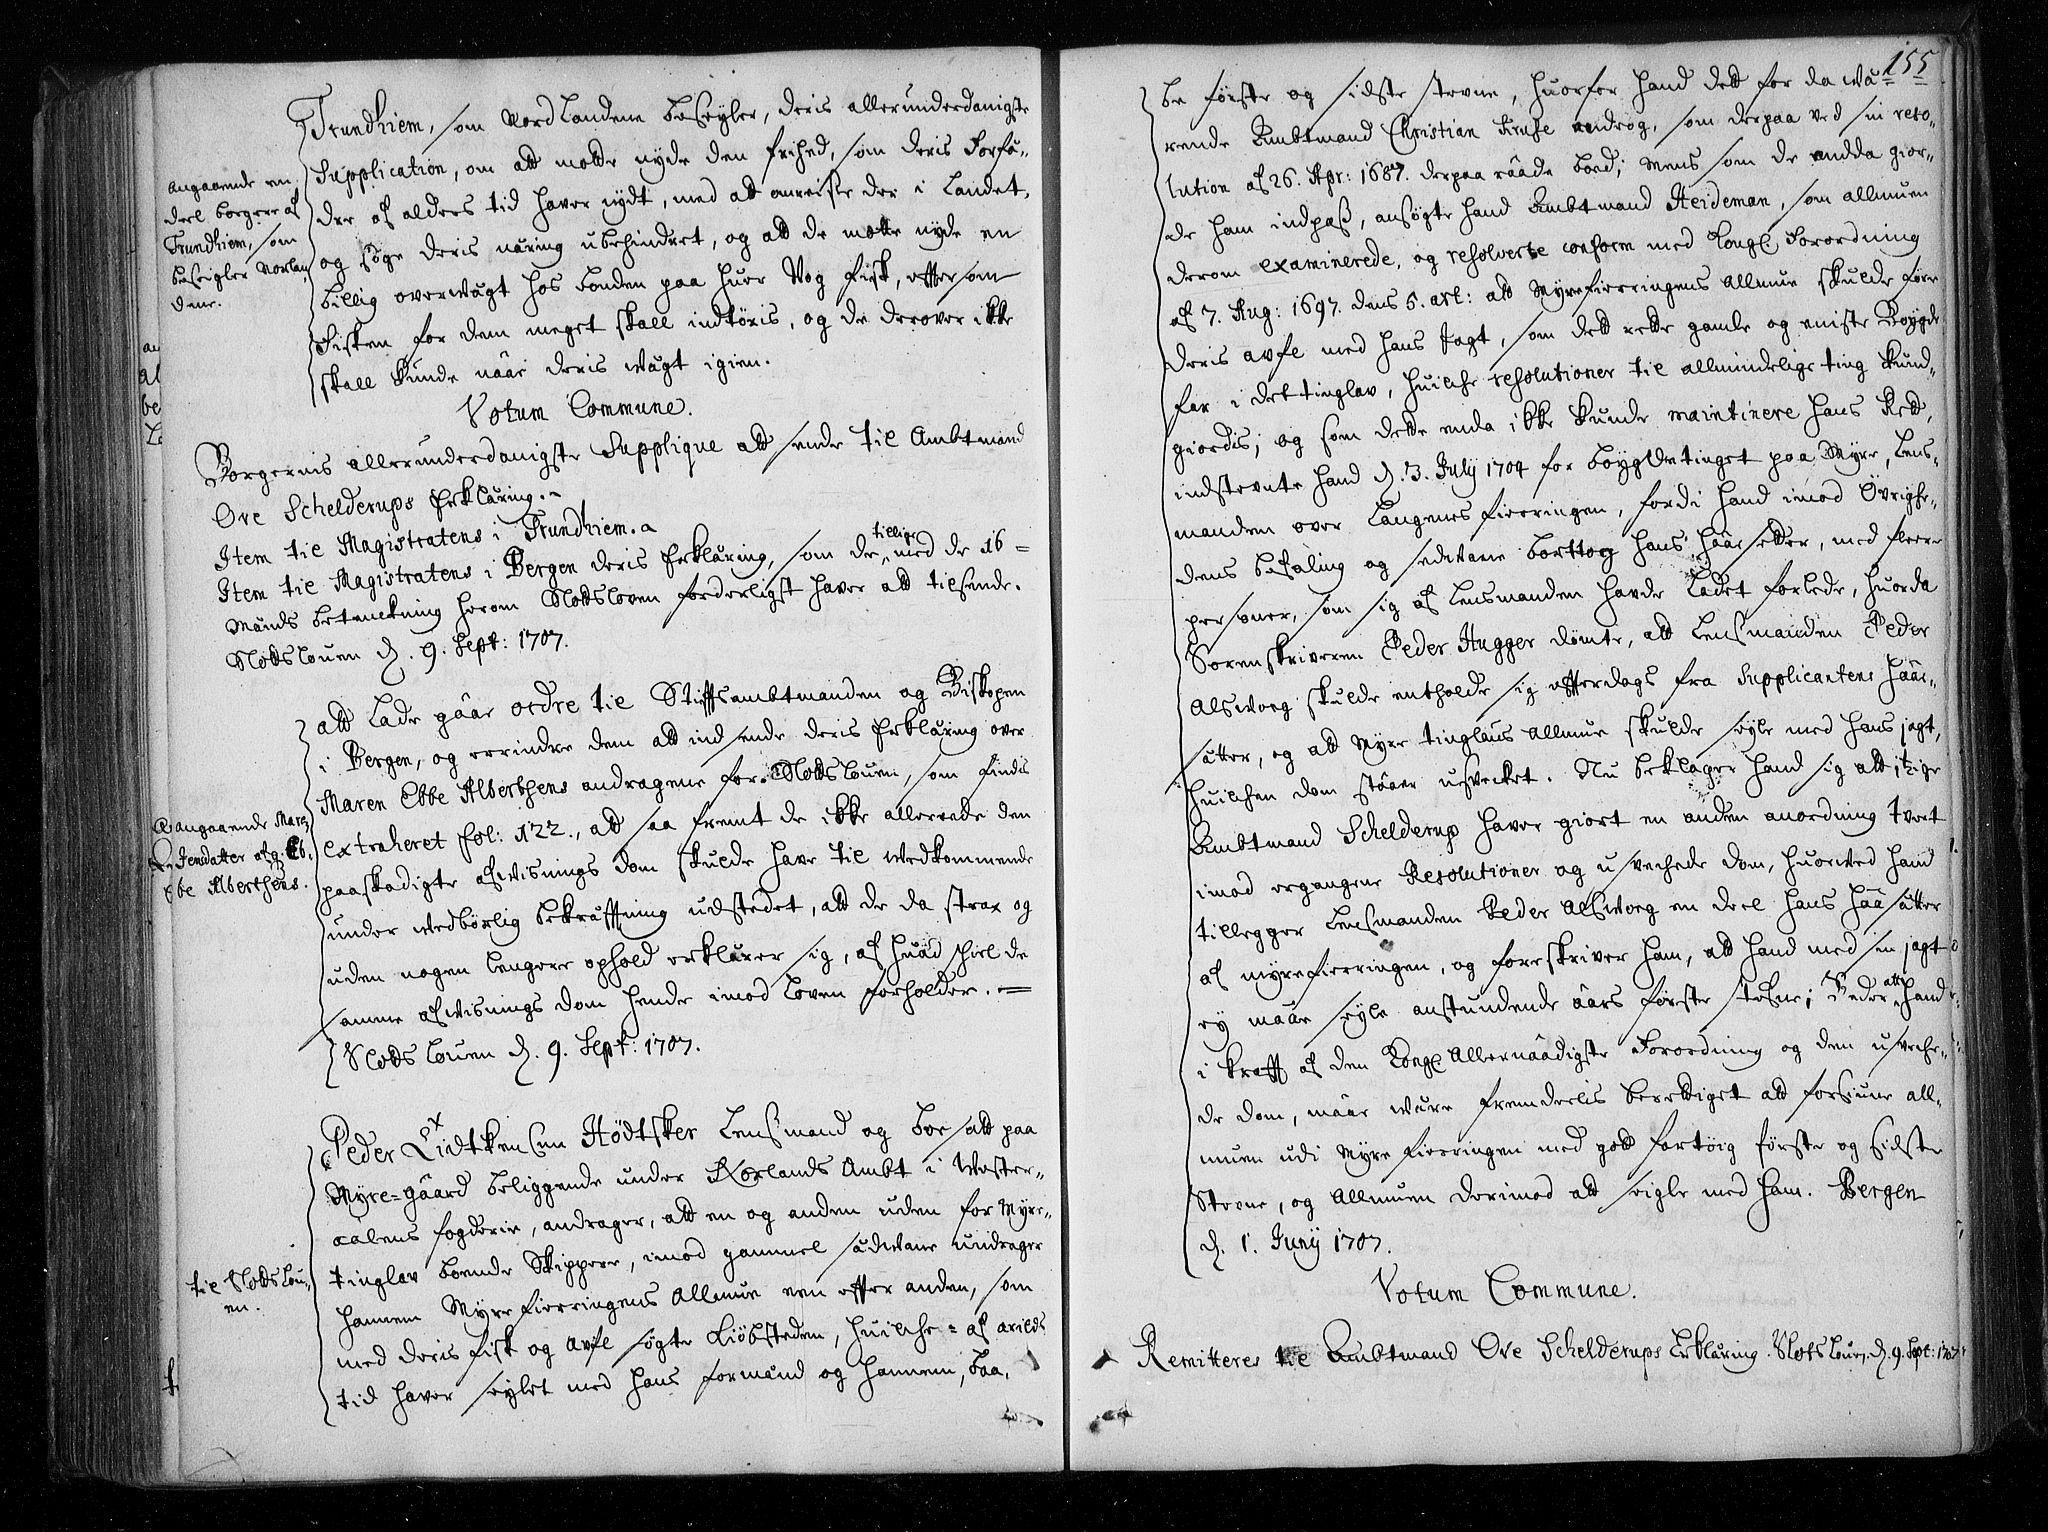 Trundhiem, som Nordlandene beseyler, deris allerunderdanigste
Supplication, om att motte nyde den frihed, som deris Forfæ-
dre af alders tid haver nydt, med att anreise der i Landet,
og søge deris næring ubehindret, og att de motte nyde en
billig overwægt hos bonden paa huer Vog fisk, eftersom
Fisken for dem meget skall indtøris, og de derover ikke
skall kunde nåår deris wægt igien.
Angaaende en
deel borgere af
Trundhiem, som
beseigler Norlan
dene.
Votum Commune.
Borgernis allerunderdanigste Supplique att sende til Ambtmand
Ove Schelderups Erklæring.
Item til Magistratens i Trundhiem.
Item til Magistratens i Bergen deris Erklæring, som de tillige med de 16=
Mænds betenckning herom Slodsloven forderligst haver att tilsende.
Slodslouen d. 9. Sept: 1707.
att lade gåår ordre til Stiffsambtmanden og Biskopen
i Bergen, og errindre dem att indsende deris Erklæring over
Maren Ebbe Alberthens andragene for Slodslouen, som findis
extraheret fol: 122., att saa fremt de ikke allerrede den
paaskadigte afwisnings dom skulde have til wedkommende
under wedbørlig bekræfftning udstedet, att de da strax og
uden nogen lengere ophold erklærer sig, af huad schiel de
samme afwisnings dom hende imod loven forholder.
Slodslouen d. 9. Sept: 1707.
angaaende Maren
Jensdatter afg: Eb,
Ebbe Alberthens.
Peder Lidtkensen Hødtsker Lensmand og boesatt paa
Myre=gåård beliggende under Norlands Ambt i Wester-
aalens fogderie, andrager, att en og anden uden for Myre-
tinglav boende Skippere, imod gammel sædwane undrager
hannem Myrefierringens Allmue een effter anden, som
med deris fisk og avfle søgte Kiøbsteden, huilche = af arilds
tid haver seylet med hans formænd og hannem, baa-
til Slodslou-
en.
155
de første og sidste stevne, huorfor hand dett for da wæ-
rende Ambtmand Christian Kruse androg, som derpaa ved sin reso-
lution af 26. Apr: 1687. derpaa rååde boed; Mens som de endda gior-
de ham indpass, ansøgte hand Ambtmand Heideman, som allmuen
derom examinerede, og resolverte conform med Kongl Forordning
af 7. Aug: 1697. dens 5. art: att Myrefierringens Allmue skulde føre
deris avfle med hans Jagt, som dett rette gamle og eniste Bøygde
far i det tinglav, huilche resolutioner til allmindelige ting kund-
giordis; og som dette enda ikke kunde maintinere hans Rett,
indstevnte hand d. 3. July 1704 for bøygdetinget paa Myre, Lens-
manden over Langenes fierringen, fordi hand imod Øvrighe-
dens befaling og sedwane borttog hans håår setter, med fleere
personer, som sig af lensmanden hawde ladet forlede, huorda
Sorenskriveren Peder Hugger dømte, att lensmanden Peder
Alsworg skulde entholde sig effterdags fra Supplicantens håår-
sætter, og att Myre tinglaus allmue skulde seyle med hans jagt,
huilchen dom ståår usvecket. Nu beklager hand sig att itzige
Ambtmand Schelderup haver giort en anden anordning tvert
imod ergangene Resolutioner og usvechede dom, huorved hand
tillegger Lensmanden Peder Alsworg en deel hans håå sætter
af myrefierringen, og foreskriver ham, att hand med sin jagt
ey måår seyle anstundende åårs første stefne; Beder att hand
i krafft af den Kongl Allernåådigste Forordning og den usveche-
de dom, måår være fremdeelis berettiget att forsiune all-
muen udi Myre fierringen med gott fartøig første og sidste
Stevne, og Allmuen derimod att seigle med ham. Bergen
d. 1. Juny 1707.
Votum Commune.
Remitteres til Ambtmand Ove Schelderups Erklæring. Slotslouen d. 9. Sept: 1707